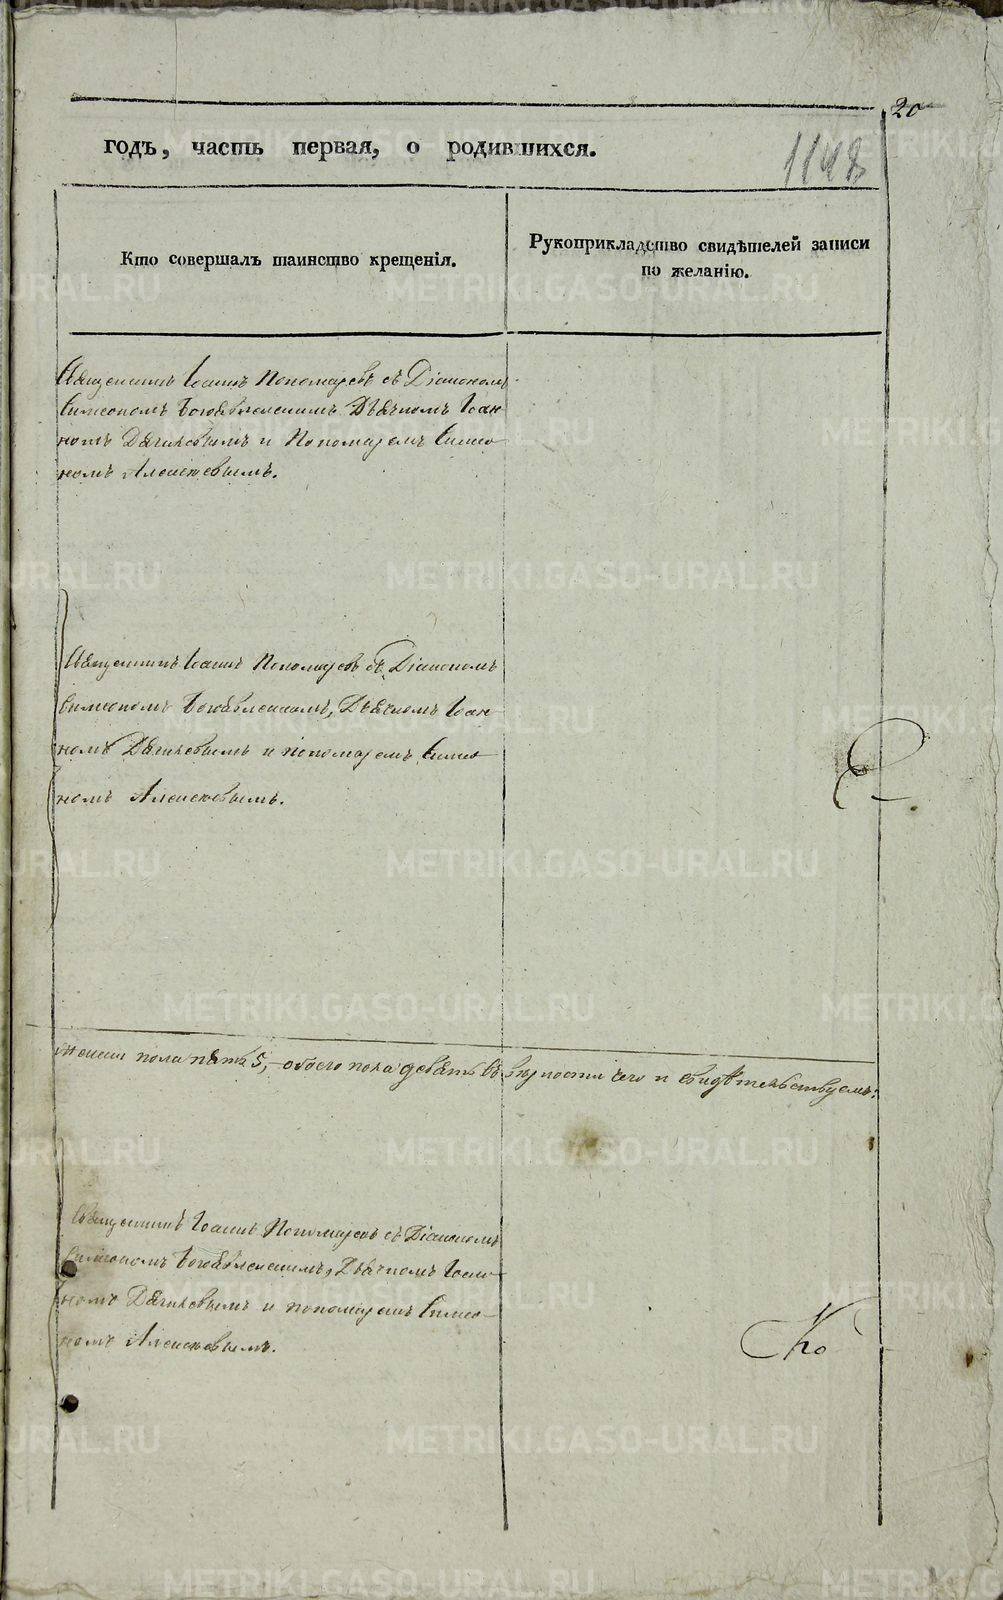 20
годъ, часть первая, о родившихся.
1148
Кто совершалъ таинство крещенія.
Рукоприкладство свидѣтелей записи
по желанію.
Священникъ Іоаннъ Пономаревъ съ Діакономъ
Симеономъ Богоявленскимъ Дьячкомъ Іоан-
номъ Дягилевымъ и Пономаремъ Симео-
номъ Алексѣевымъ.
Священникъ Іоаннъ Пономаревъ съ Діакономъ
Симеономъ Богоявленскимъ, Дьячкомъ Іоан-
номъ Дягилевымъ и пономаремъ Симео
номъ Алексѣевымъ.
женска пола пять 5, обоего пола девять въ вѣрности чего и свидѣтельствуемъ:
Священникъ Іоаннъ Пономаревъ съ Діакономъ
Симеономъ Богоявленскимъ, Дьячкомъ Іоан-
номъ Дягилевымъ и пономаремъ Симео-
номъ Алексѣевымъ.
Ко
METRIKI.GASO-URAL.RU